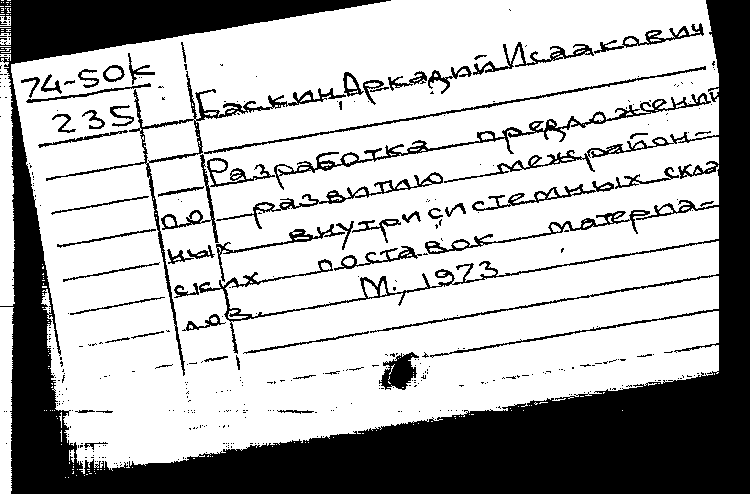 74-50к
235
Баскин, Аркадий Исаакович
Разработка предложений
по развитию межрайон-
ных внутрисистемных скла
ских поставок материа-
лов. М., 1973.